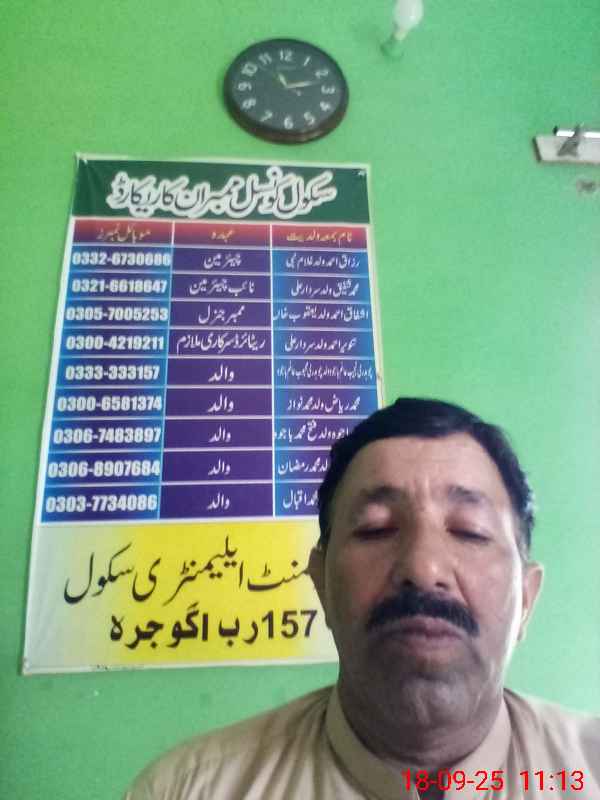 12 1 2 3 4 5 6 7 8 9 10 11
سکول کونسل ممبران کا ریکارڈ
نام بمعہ ولدیت عہدہ موبائل نمبرز
رزاق احمد ولد غلام نبی چیئرمین 0332-6730686
محمد شفیق ولد سردار علی نائب چیئرمین 0321-6618647
اشفاق احمد ولد یعقوب خاں ممبر جنرل 0305-7005253
تنویر احمد ولد سردار علی ریٹائرڈ سرکاری ملازم 0300-4219211
والد 0333-333157
محمد ریاض ولد محمد نواز والد 0300-6581374
باجوہ ولد فتح محمد باجوہ والد 0306-7483897
ولد محمد رمضان والد 0306-8907684
محمد اقبال والد 0303-7734086
منٹ ایلیمنٹری سکول
157 رب گوجرہ
18-09-25 11:13